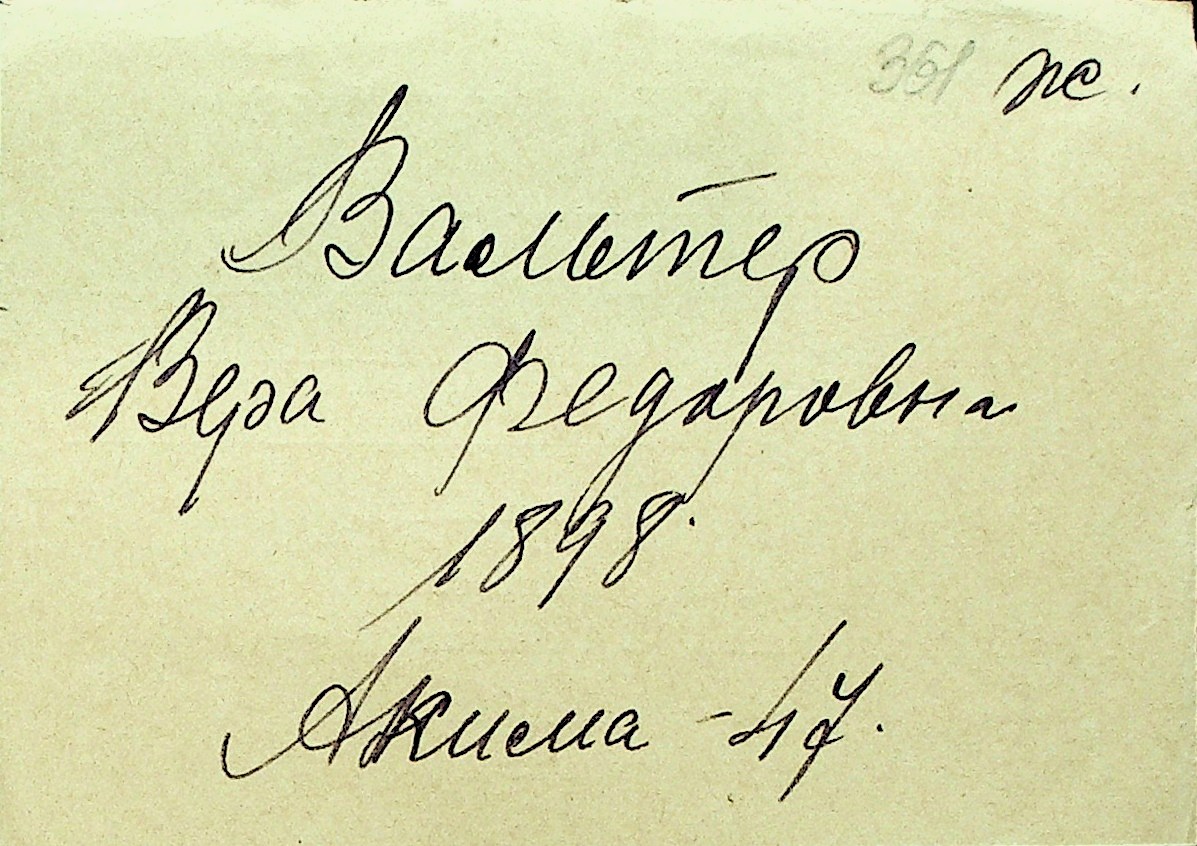 351 ж.
Вальтер
Вера Федоровна
1898.
Акима - 47.